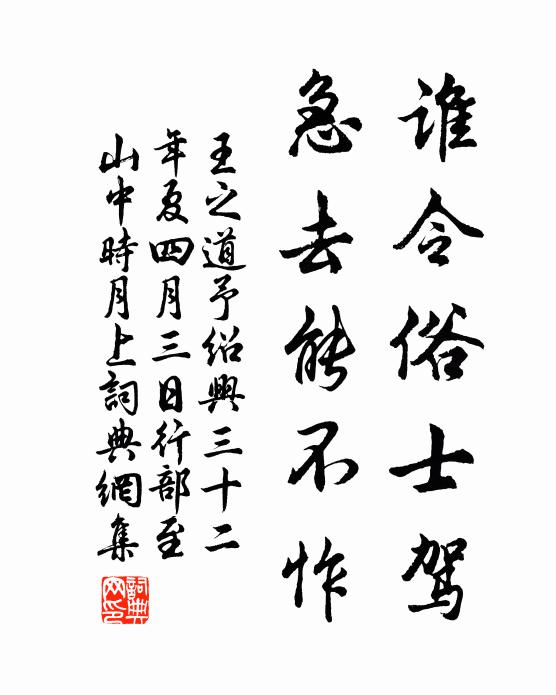 誰令俗士駕
急去能不怍
王之道予紹興三十二
年夏四月三日行部至
山中時月上詞典網集
詞典網印